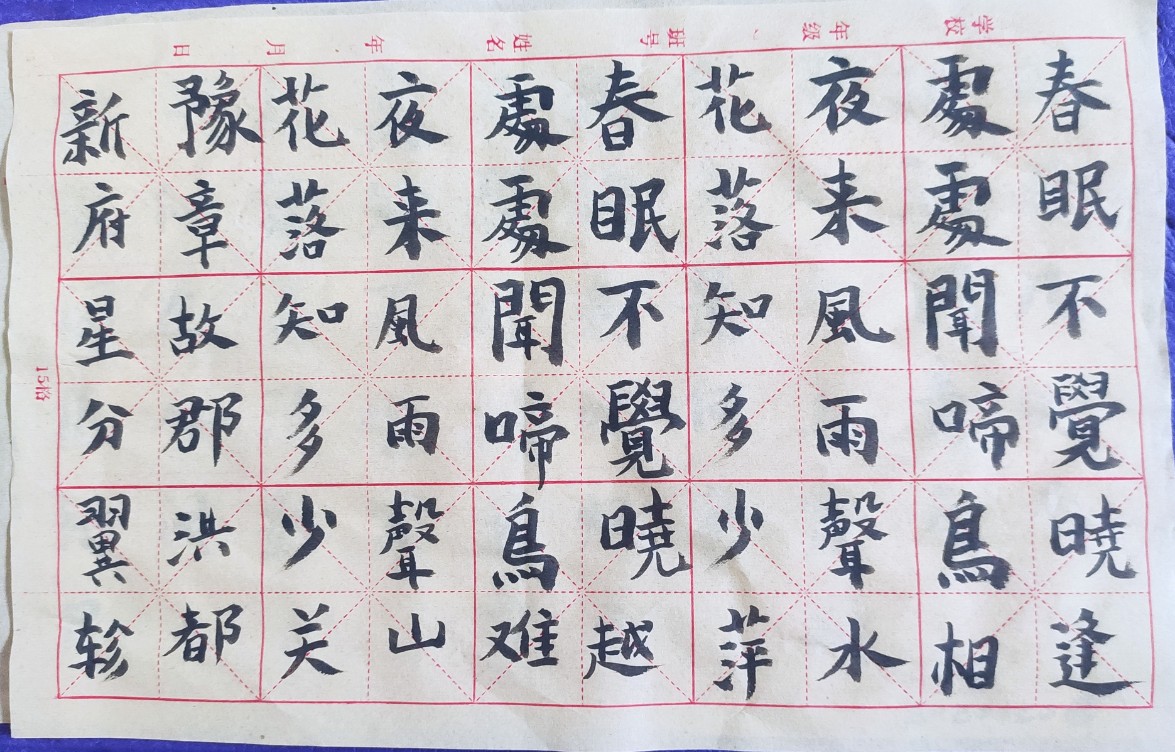 学校 年级 班号 姓名 年 月 日
春眠不覺曉逢
處處聞啼鳥相
夜来風雨聲水
花落知多少萍
春眠不覺曉越
處處聞啼鳥难
夜来風雨聲山
花落知多少关
豫章故郡洪都
新府星分翼轸
15格